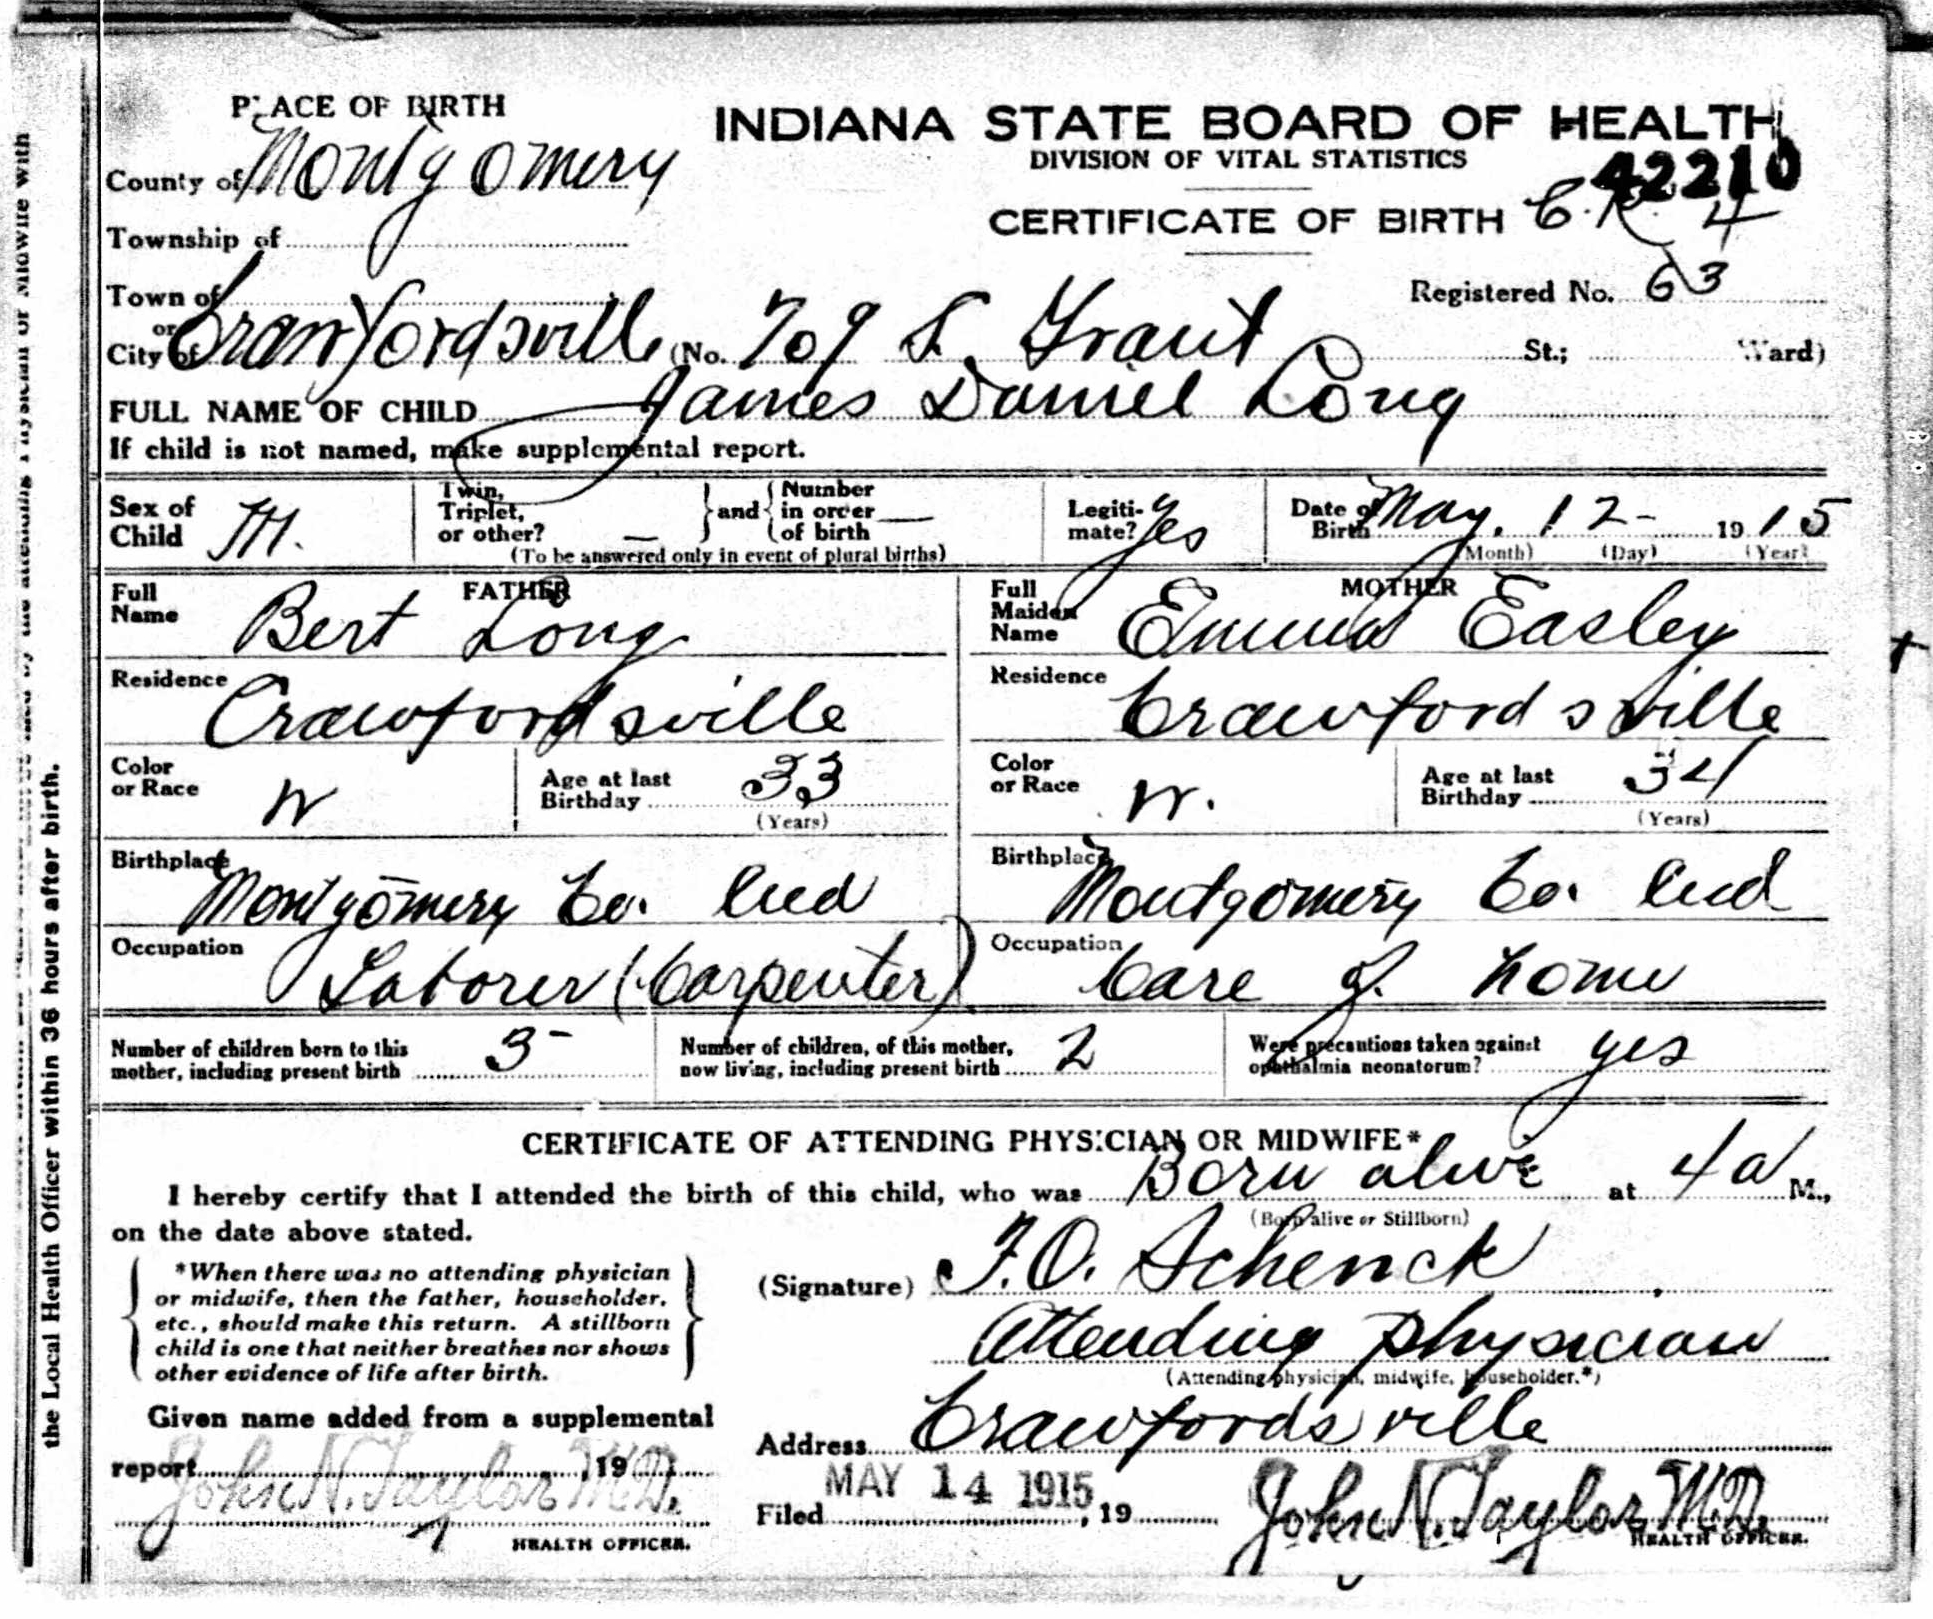 PLACE OF BIRTH
INDIANA STATE BOARD OF HEALTH
DIVISION OF VITAL STATISTICS
42210
County of Montgomery
CERTIFICATE OF BIRTH C.R. 4
Township of
Registered No. 63
Town of
or
City of Crawfordsville (No. 709 S. Grant St.; Ward)
FULL NAME OF CHILD James Daniel Long
If child is not named, make supplemental report.
Sex of Child M.
Twin, Triplet, or other? — and Number in order of birth —
(To be answered only in event of plural births)
Legitimate? Yes
Date of Birth May. 12- 1915
(Month) (Day) (Year)
FATHER
Full Name Bert Long
MOTHER
Full Maiden Name Emma Easley
Residence Crawfordsville
Residence Crawfordsville
Color or Race W
Age at last Birthday 33 (Years)
Color or Race W.
Age at last Birthday 34 (Years)
Birthplace Montgomery Co. Ind
Birthplace Montgomery Co. Ind
Occupation Laborer (Carpenter)
Occupation Care of home
Number of children born to this mother, including present birth 3-
Number of children, of this mother, now living, including present birth 2
Were precautions taken against ophthalmia neonatorum? yes
CERTIFICATE OF ATTENDING PHYSICIAN OR MIDWIFE*
I hereby certify that I attended the birth of this child, who was Born alive at 4 a M.,
(Born alive or Stillborn)
on the date above stated.
*When there was no attending physician
or midwife, then the father, householder,
etc., should make this return. A stillborn
child is one that neither breathes nor shows
other evidence of life after birth.
(Signature) F.O. Schenck
Attending physician
(Attending physician, midwife, householder.*)
Given name added from a supplemental
report , 19
John N. Taylor M.D.
HEALTH OFFICER.
Address Crawfordsville
MAY 14 1915
Filed , 19
John N. Taylor M.D.
HEALTH OFFICER.
the Local Health Officer within 36 hours after birth.